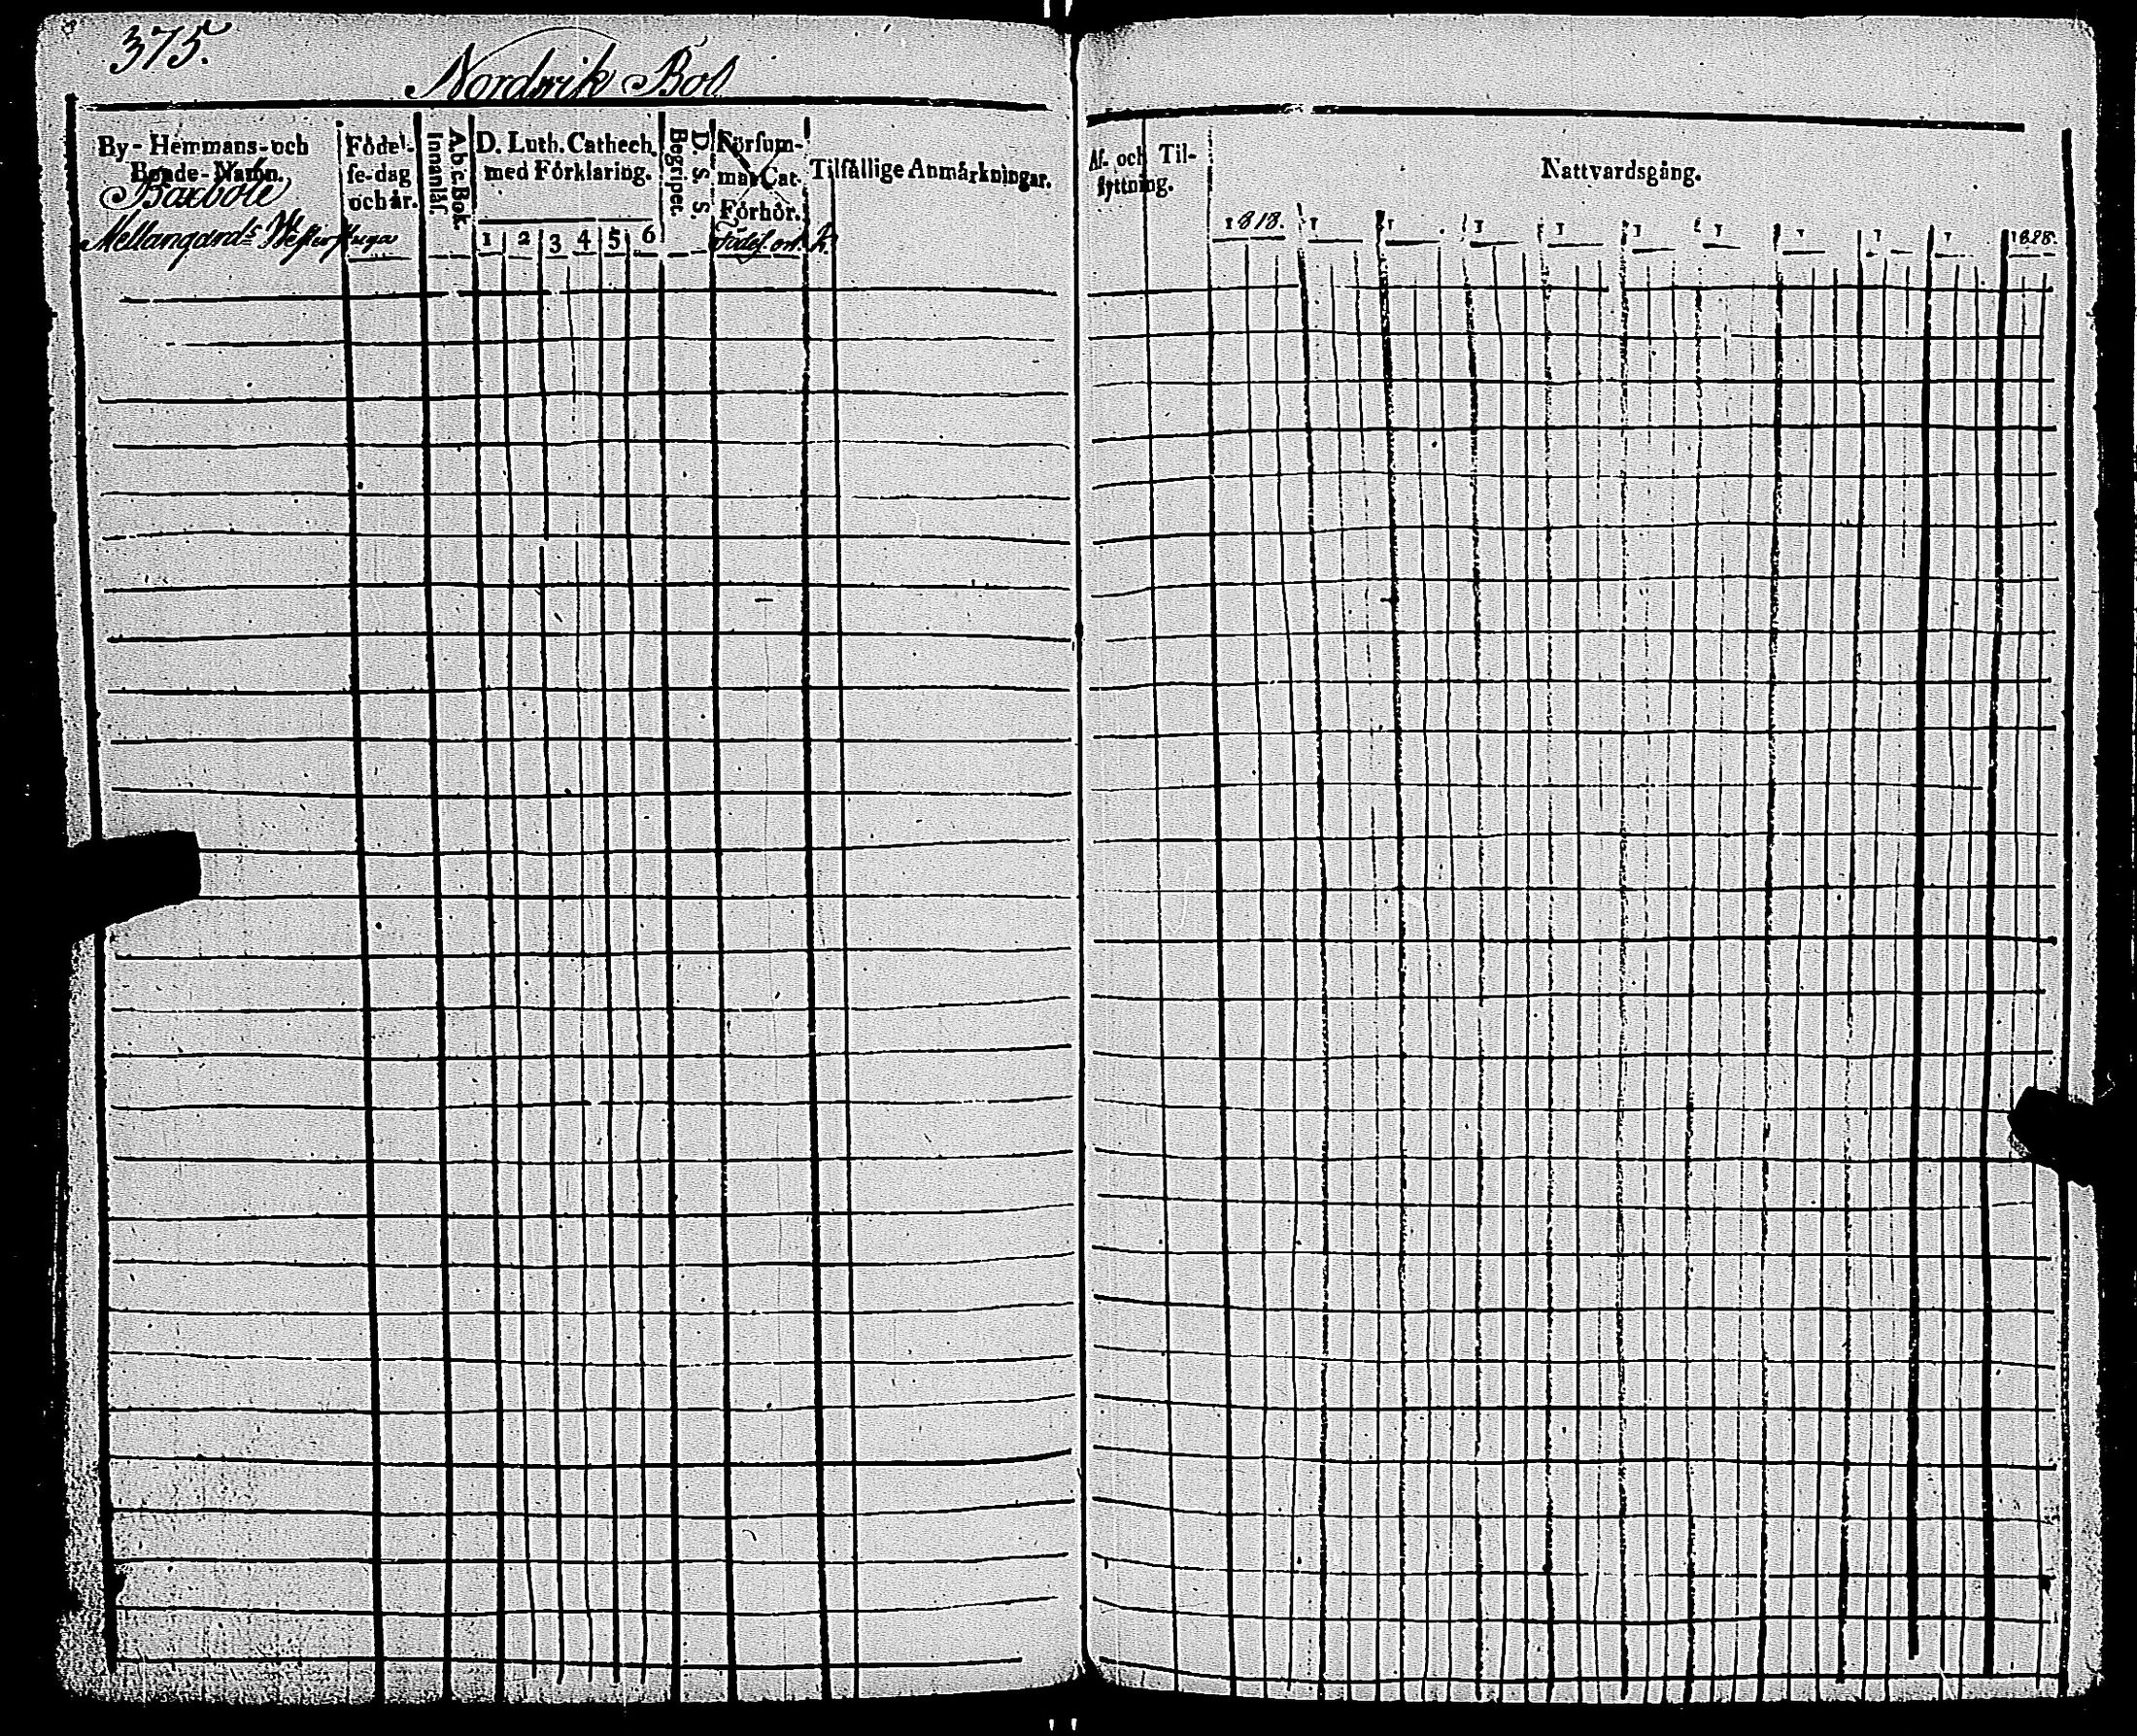 375.
Nordwik Bol
By- Hemmans- och
Bonde- Namn.
Baxböle
Mellangårds Westerstuga
Födel-
se-dag
och år.
A b c Bok.
Innanläs.
D. Luth. Cathech.
med Förklaring.
1 2 3 4 5 6
D. S. S.
Begripet.
Försum-
mat Cat.
Förhör.
Födels. ort.
Tilfällige Anmärkningar.
Af- och Til-
flyttning.
Nattvardsgång.
1818. 1 1 1 1 1 1 1 1 1 1828.